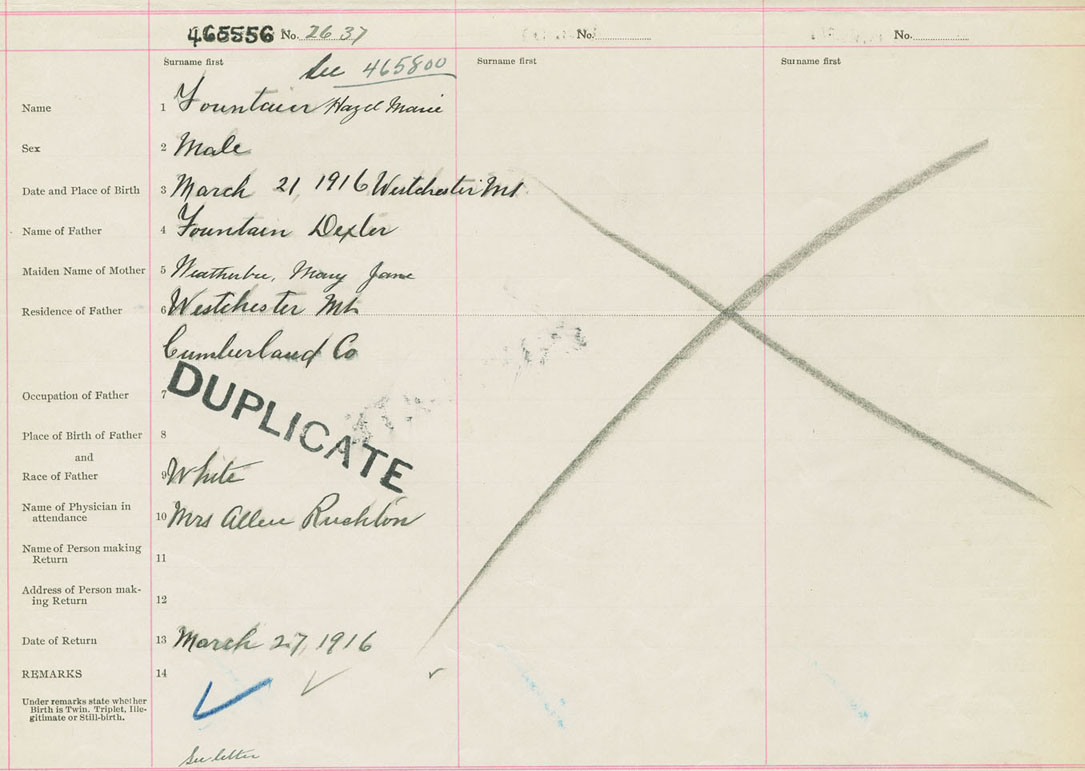 465556 No. 2637 No. No.
Surname first Surname first Surname first
See 465800
Name 1 Fountain Hazel Marie
Sex 2 Male
Date and Place of Birth 3 March 21, 1916 Westchester Mt.
Name of Father 4 Fountain Dexter
Maiden Name of Mother 5 Weatherbee, Mary Jane
Residence of Father 6 Westchester Mt.
Cumberland Co
DUPLICATE
Occupation of Father 7
Place of Birth of Father 8
and
Race of Father 9 White
Name of Physician in
attendance 10 Mrs Allen Rushton
Name of Person making
Return 11
Address of Person mak-
ing Return 12
Date of Return 13 March 27, 1916
REMARKS 14
Under remarks state whether
Birth is Twin, Triplet, Ille-
gitimate or Still-birth.
See letter